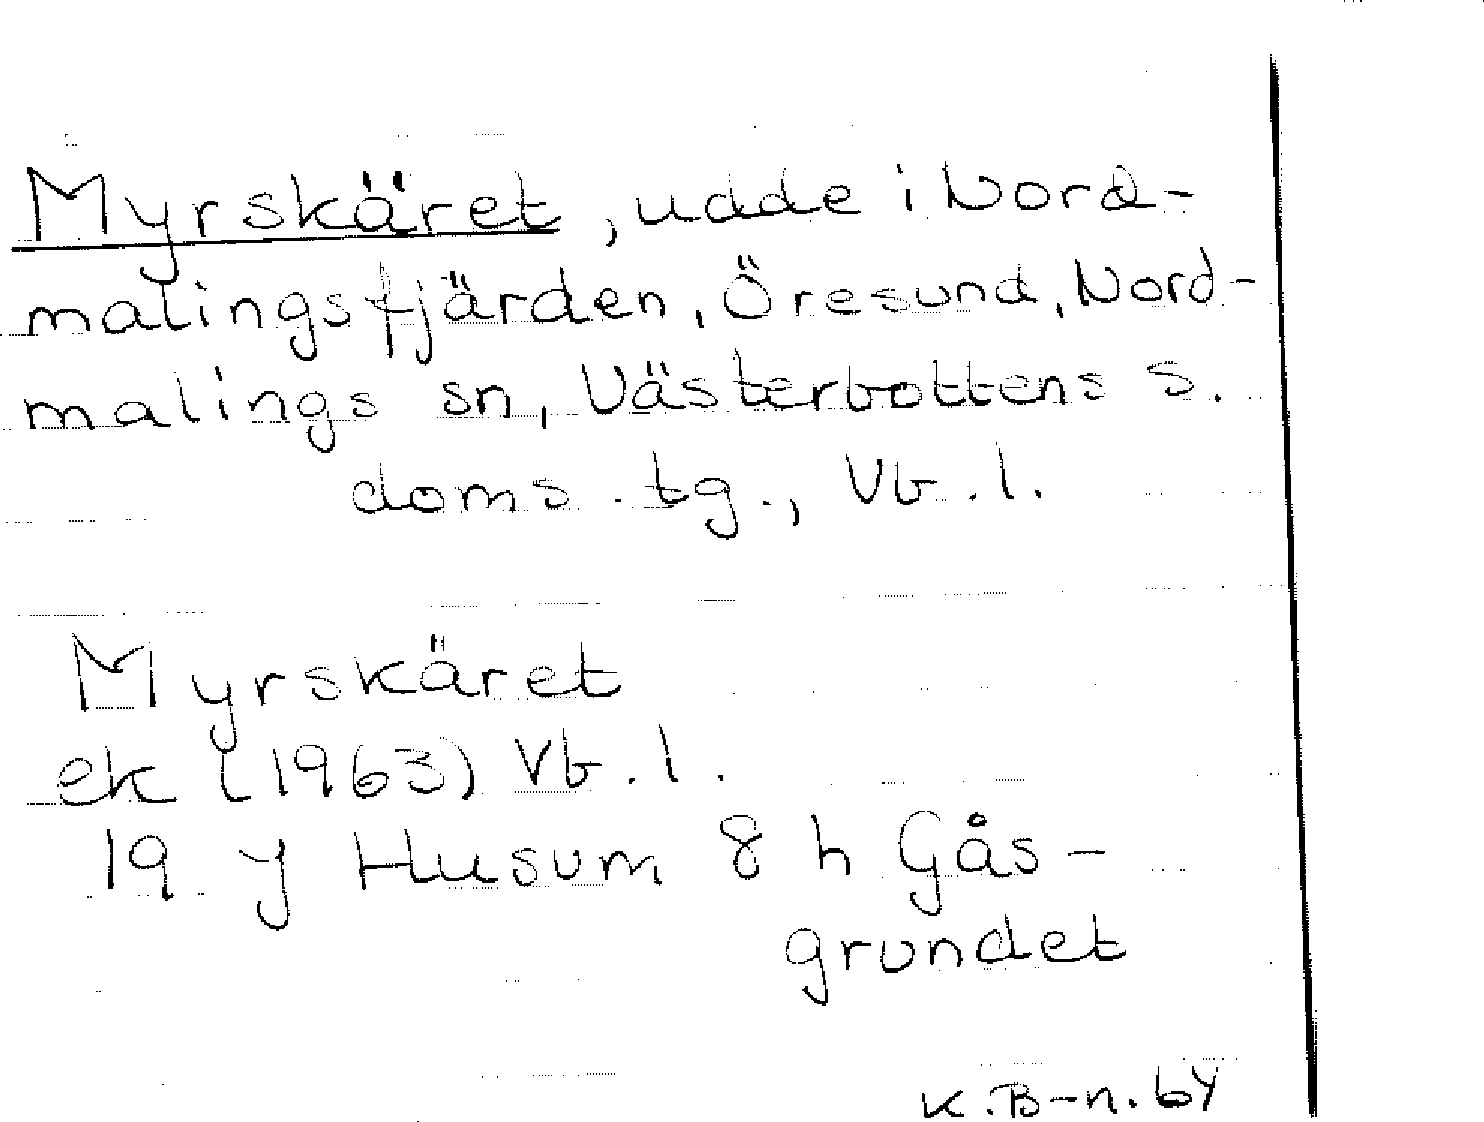 Myrskäret, udde i Nord-
malingsfjärden, Öresund, Nord-
malings sn, Västerbottens s.
doms.tg., Vb.l.
Myrskäret
ek (1963) Vb.l.
19 J Husum 8 h Gås-
grundet
K.B-n. 64